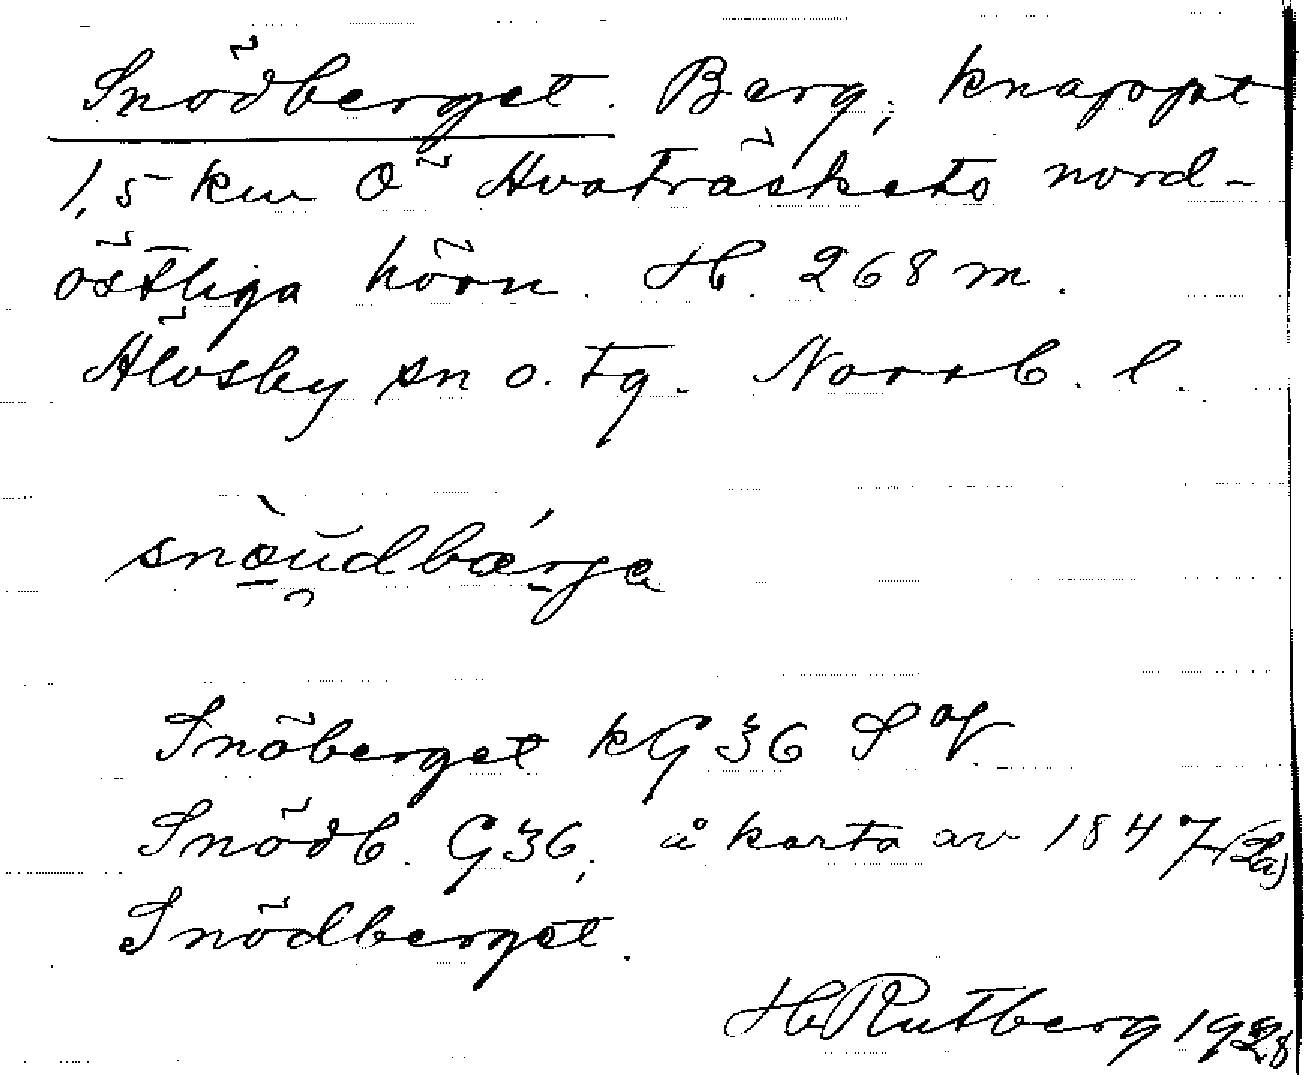 Snödberget. Berg, knappt
1,5 km Ö Hvaträskets nord-
östliga hörn. H. 268 m.
Älvsby sn o. tg. Norrb. l.
snòu̯dbárga
Snöberget kG 36 SaV
Snödb. G36, å karta av 1847 (La)
Snödberget.
H Rutberg 1928